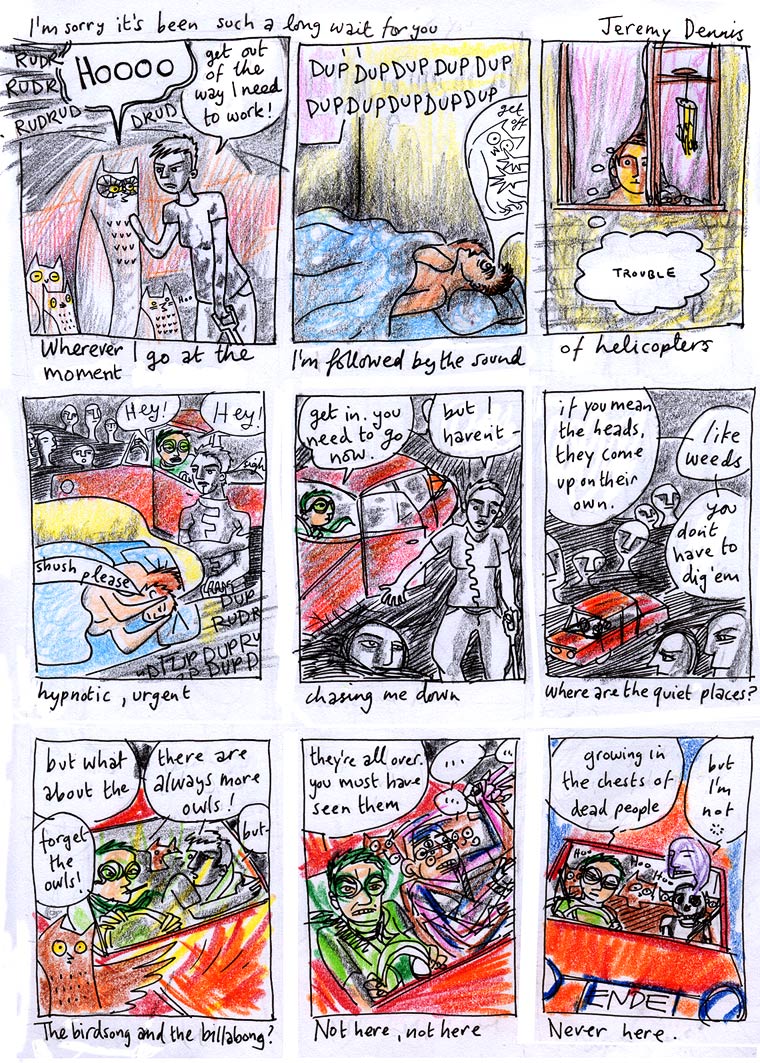 I'm sorry it's been such a long wait for you
Jeremy Dennis
RUDR
RUDR
RUDRUD
HOOOO
DRUD
get out
of the
way I need
to work!
Hoo
Wherever I go at the
moment
DUP DUPDUP DUP DUP
DUPDUPDUPDUPDUP
get
off
I'm followed by the sound
TROUBLE
of helicopters
Hey!
Hey!
sigh
shush please
DUP
RUDR
DUPRU
DUPD
hypnotic, urgent
get in. you
need to go
now.
but I
haven't -
chasing me down
if you mean
the heads,
they come
up on their
own.
like
weeds
you
don't
have to
dig 'em
where are the quiet places?
but what
about the
there are
always more
owls!
forget
the
owls!
but-
The birdsong and the billabong?
they're all over.
you must have
seen them
...
...
Not here, not here
growing in
the chests of
dead people
but
I'm
not
Hoo
Hoo
Hoo
ENDE!
Never here.